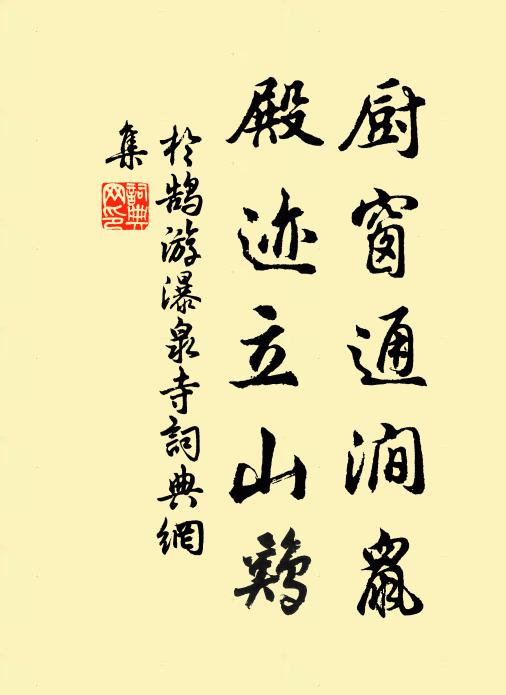 厨窗通涧鼠
殿迹立山鸡
於鹄游瀑泉寺詞典網
集
詞典網印